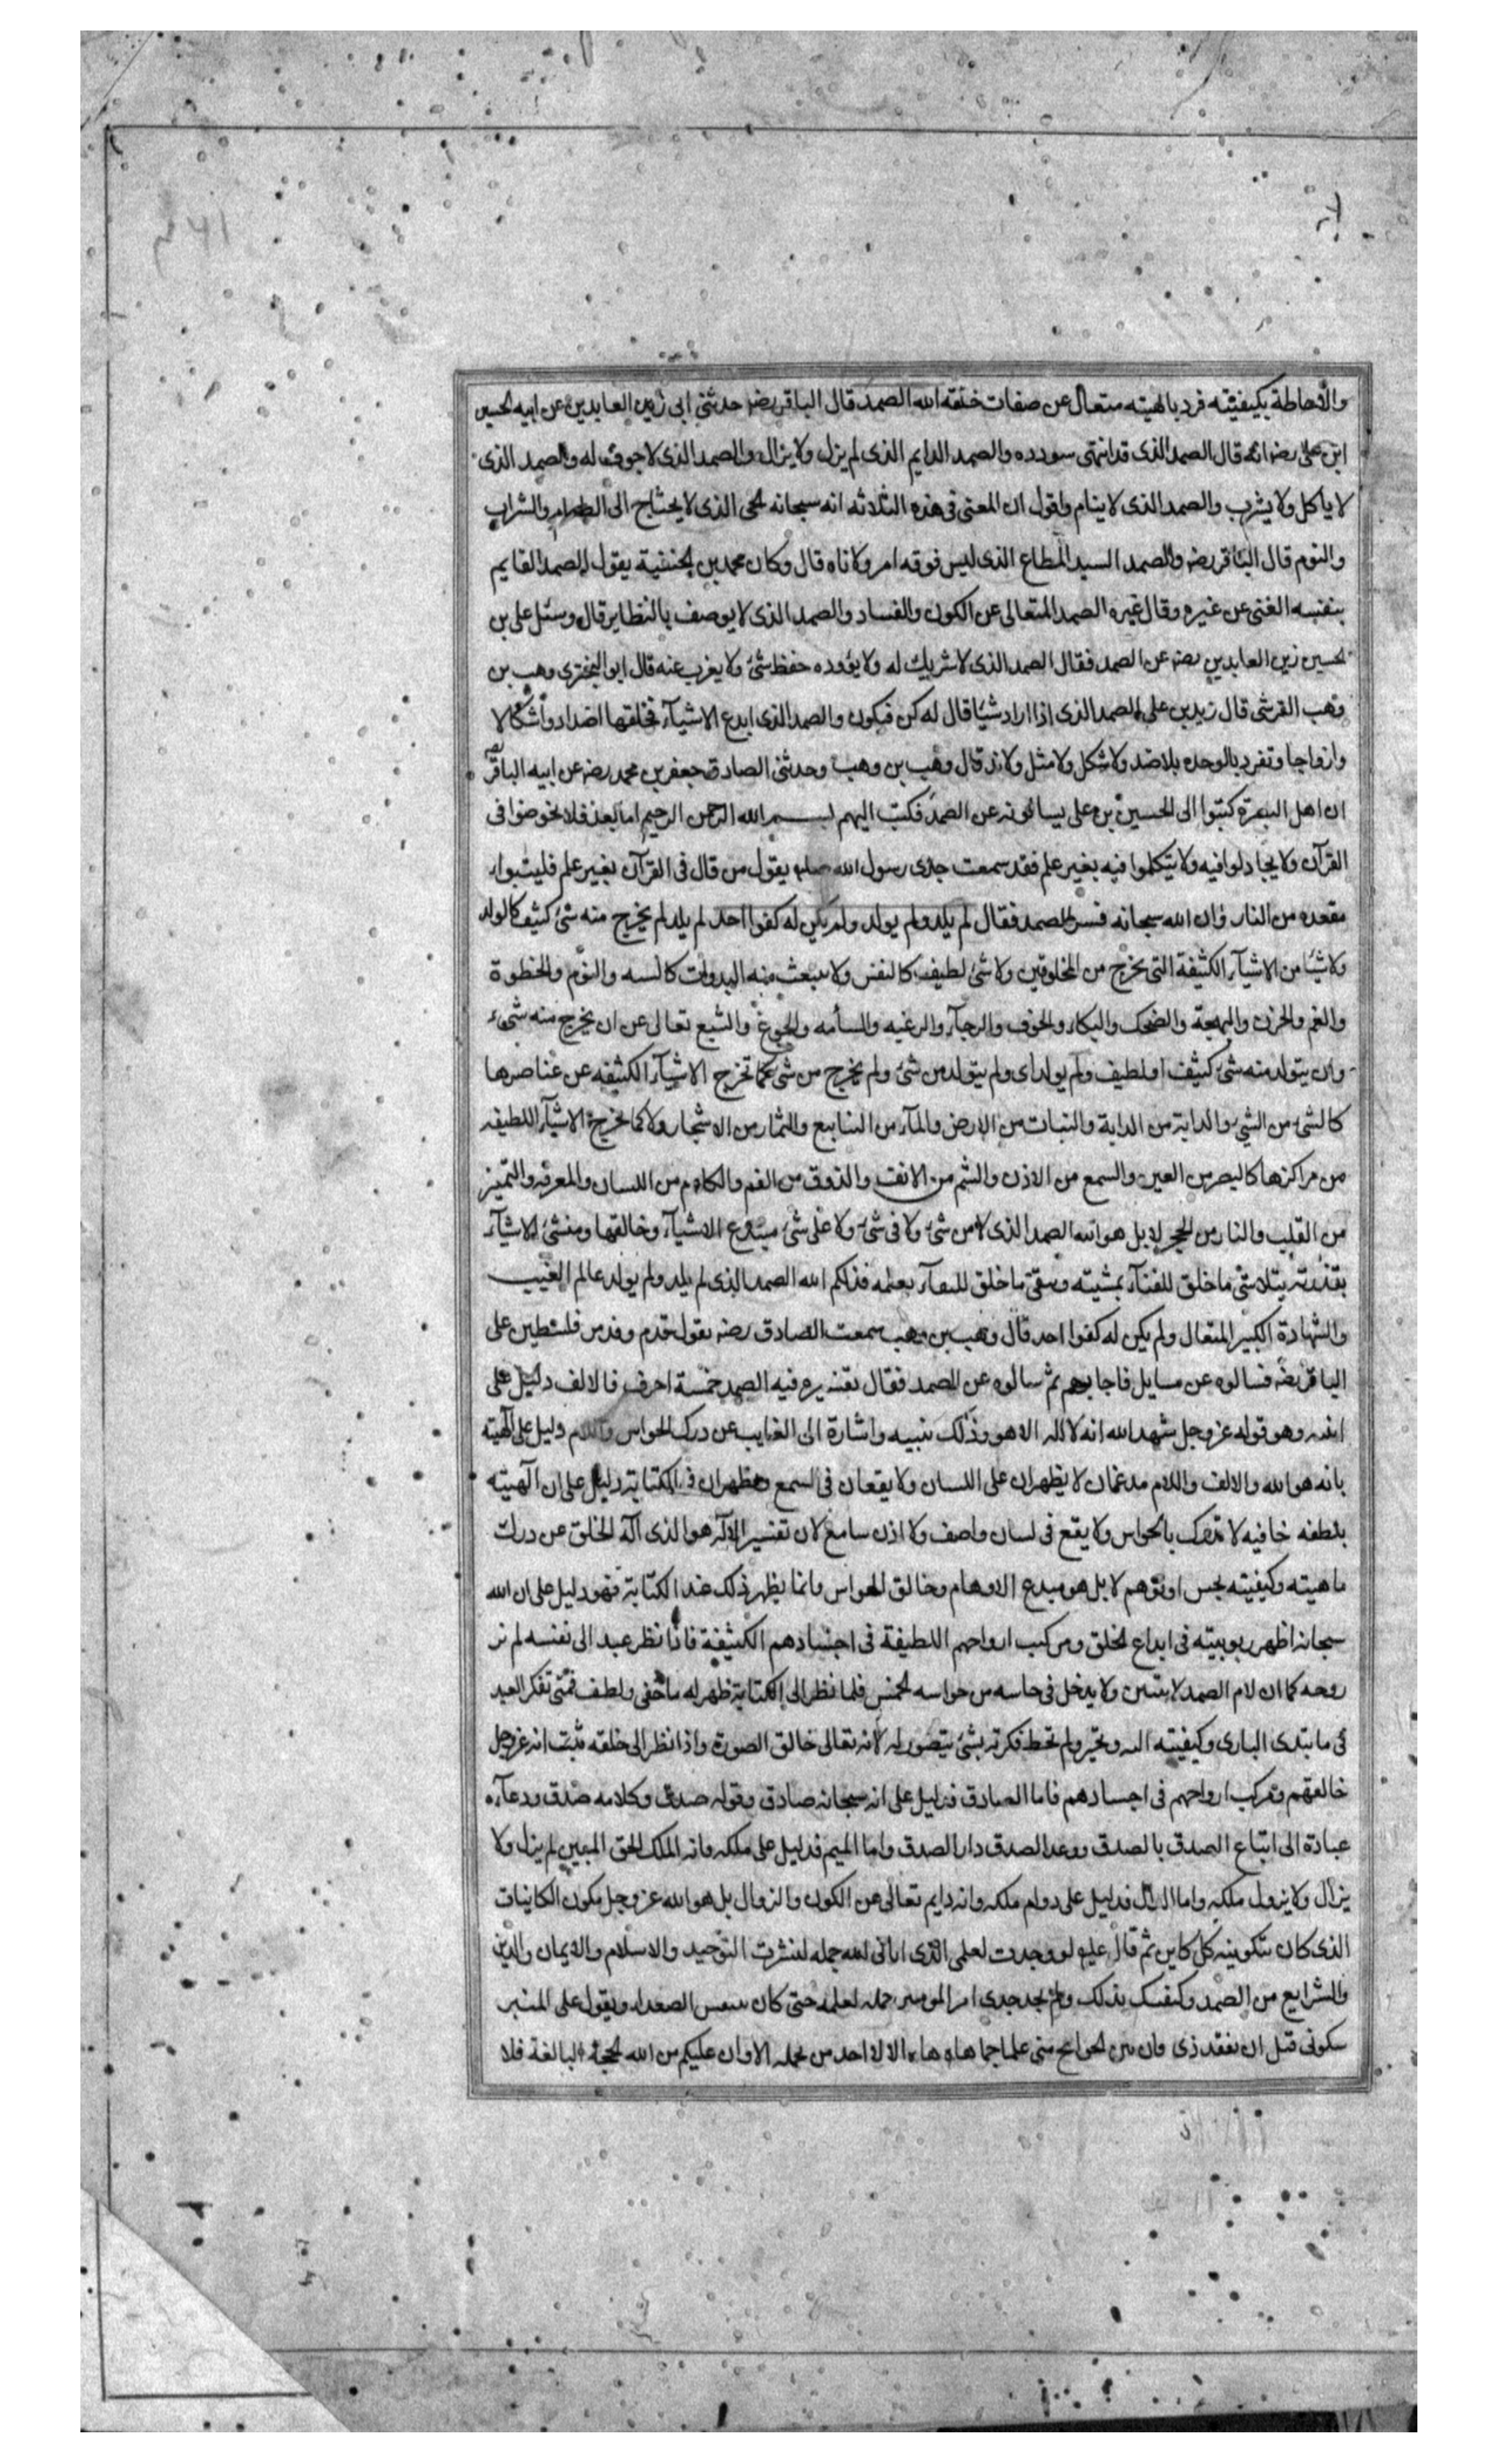 والأحاطة بكيفيته فرد بالهيته متعال عن صفات خلقه الله الصمد قال الباقر رضه حدثني ابي زين العابدين عن ابيه الحسين
ابن على رضه انه قال الصمد الذى قد انتهى سودده والصمد الدايم الذى لم يزل ولا يزال والصمد الذى لا جوف له والصمد الذى
لا ياكل ولا يشرب والصمد الذى لا ينام واقول ان المعنى فى هذه الثلاثه انه سبحانه الحى الذى لا يحتاج الى الطعام والشراب
والنوم قال الباقر رضه والصمد السيد المطاع الذى ليس فوقه امر ولا ناه قال وكان محمد بن الحنفية يقول الصمد القايم
بنفسه الغنى عن غيره وقال غيره الصمد المتعالى عن الكون والفساد والصمد الذى لا يوصف بالنظاير قال وسئل على بن
الحسين زين العابدين رضه عن الصمد فقال الصمد الذى لا شريك له ولا يؤوده حفظ شئ ولا يغرب عنه قال ابو البخترى وهب بن
وهب القرشى قال زيد بن على الصمد الذى اذا اراد شيئا قال له كن فيكون والصمد الذى ابدع الاشيآء فخلقها اضداد واشكالا
وازواجا وتفرد بالوحده بلا ضد ولا شكل ولا مثل ولا ند قال وهب بن وهب وحدثنى الصادق جعفر بن محمد رضه عن ابيه الباقر
ان اهل البصرة كتبوا الى الحسين بن على يسالونه عن الصمد فكتب اليهم بسم الله الرحمن الرحيم اما بعد فلا تخوضوا فى
القرآن ولا يجادلوا فيه ولا يتكلموا فيه بغير علم فقد سمعت جدى رسول الله صلعم يقول من قال فى القرآن بغير علم فليتبوار
مقعده من النار وان الله سبحانه فسر الصمد فقال لم يلد ولم يولد ولم يكن له كفوا احد لم يلد لم يخرج منه شئ كثيف كالولد
ولا شيئا من الاشيآء الكثيفة التى يخرج من المخلوقين ولا شئ لطيف كالنفس ولا ينبعث منه البدوات كالسنه والنوم والخظوة
والغم والحزن والبهجة والضحك والبكاء والخوف والرجآء والرغبه والسأمه والجوع والشبع تعالى عن ان يخرج منه شىء
وان يتولد منه شئ كثيف او لطيف ولم يولد اى ولم يتولد من شئ ولم يخرج من شئ كما تخرج الاشيآء الكثيفه عن عناصرها
كالشئ من الشئ والدابة من الدابة والنبات من الارض والمآء من الينابيع والثمار من الاشجار ولا كما يخرج الاشيآء اللطيفه
من مراكزها كالبصر من العين والسمع من الاذن والشم من الانف والذوق من الفم والكلام من اللسان والمعرفه والتميز
من القلب والنار من الحجر لا بل هو الله الصمد الذى لا من شئ ولا فى شئ ولا على شئ مبدع الاشيآء وخالقها ومنشئ الاشيآء
بقدرته يتلاشى ما خلق للفنآء بمشيته ويبقى ما خلق للبقآء بعلمه فذلكم الله الصمد الذى لم يلد ولم يولد عالم الغيب
والشهادة الكبير المتعال ولم يكن له كفوا احد قال وهب بن وهب سمعت الصادق رضه يقول قدم وفد من فلسطين على
الباقر رضه فسالوه عن مسايل فاجابهم ثم سالوه عن الصمد فقال تفسيره فيه الصمد خمسة احرف فالالف دليل على
انيته وهو قوله عز وجل شهد الله انه لا اله الا هو وذلك تنبيه واشارة الى الغايب عن درك الحواس واللام دليل على آلهيته
بانه هو الله والالف واللام مدغمان لا يظهران على اللسان ولا يقعان فى السمع ويظهران فى الكتابة دليل على ان آلهيته
بلطفه خافيه لا تدرك بالحواس ولا يقع فى لسان واصف ولا اذن سامع لان تفسير الآله هو الذى اله الخلق عن درك
ماهيته وكيفيته بحس او بوهم لا بل هو مبدع الاوهام وخالق الحواس وانما يظهر ذلك عند الكتابة فهو دليل على ان الله
سبحانه اظهر ربوبيته فى ابداع الخلق ومركب ارواحهم اللطيفة فى اجسادهم الكثيفة فاذا نظر عبد الى نفسه لم ير
روحه كما ان لام الصمد لا يتبين ولا يدخل فى حاسه من حواسه الخمس فلما نظر الى الكتابة ظهر له ما خفى ولطف فمتى تفكر العبد
فى ما يبتدى البارى وكيفيته اله وتحير ولم تحط فكرته بشئ يتصور له لانه تعالى خالق الصورة واذا نظر الى خلقه ثبت انه عز وجل
خالقهم ومركب ارواحهم فى اجسادهم فاما الصادق فدليل على انه سبحانه صادق وقوله صدق وكلامه صدق ودعآءه
عبادة الى اتباع الصدق بالصدق ووعد الصدق دار الصدق واما الميم فدليل على ملكه وانه الملك الحق المبين لم يزل ولا
يزال ولا يزول ملكه واما الدال فدليل على دوام ملكه وانه دايم تعالى عن الكون والزوال بل هو الله عز وجل مكون الكانيات
الذى كان بتكوينه كل كاين ثم قال عليه لو وجدت لعلمى الذى اتانى الله حمله لنشرت التوحيد والاسلام والايمان والدين
والشرايع من الصمد وكيفك بذلك ولم يجد جدى امر المومنين حمله لعلمه حتى كان يتنفس الصعداء ويقول على المنبر
سكونى قبل ان تفقد ذى فان بين الجوانح منى علما جما هاه هاه الا لا احد من يحمله الا وان عليكم من الله الحجة البالغة فلا